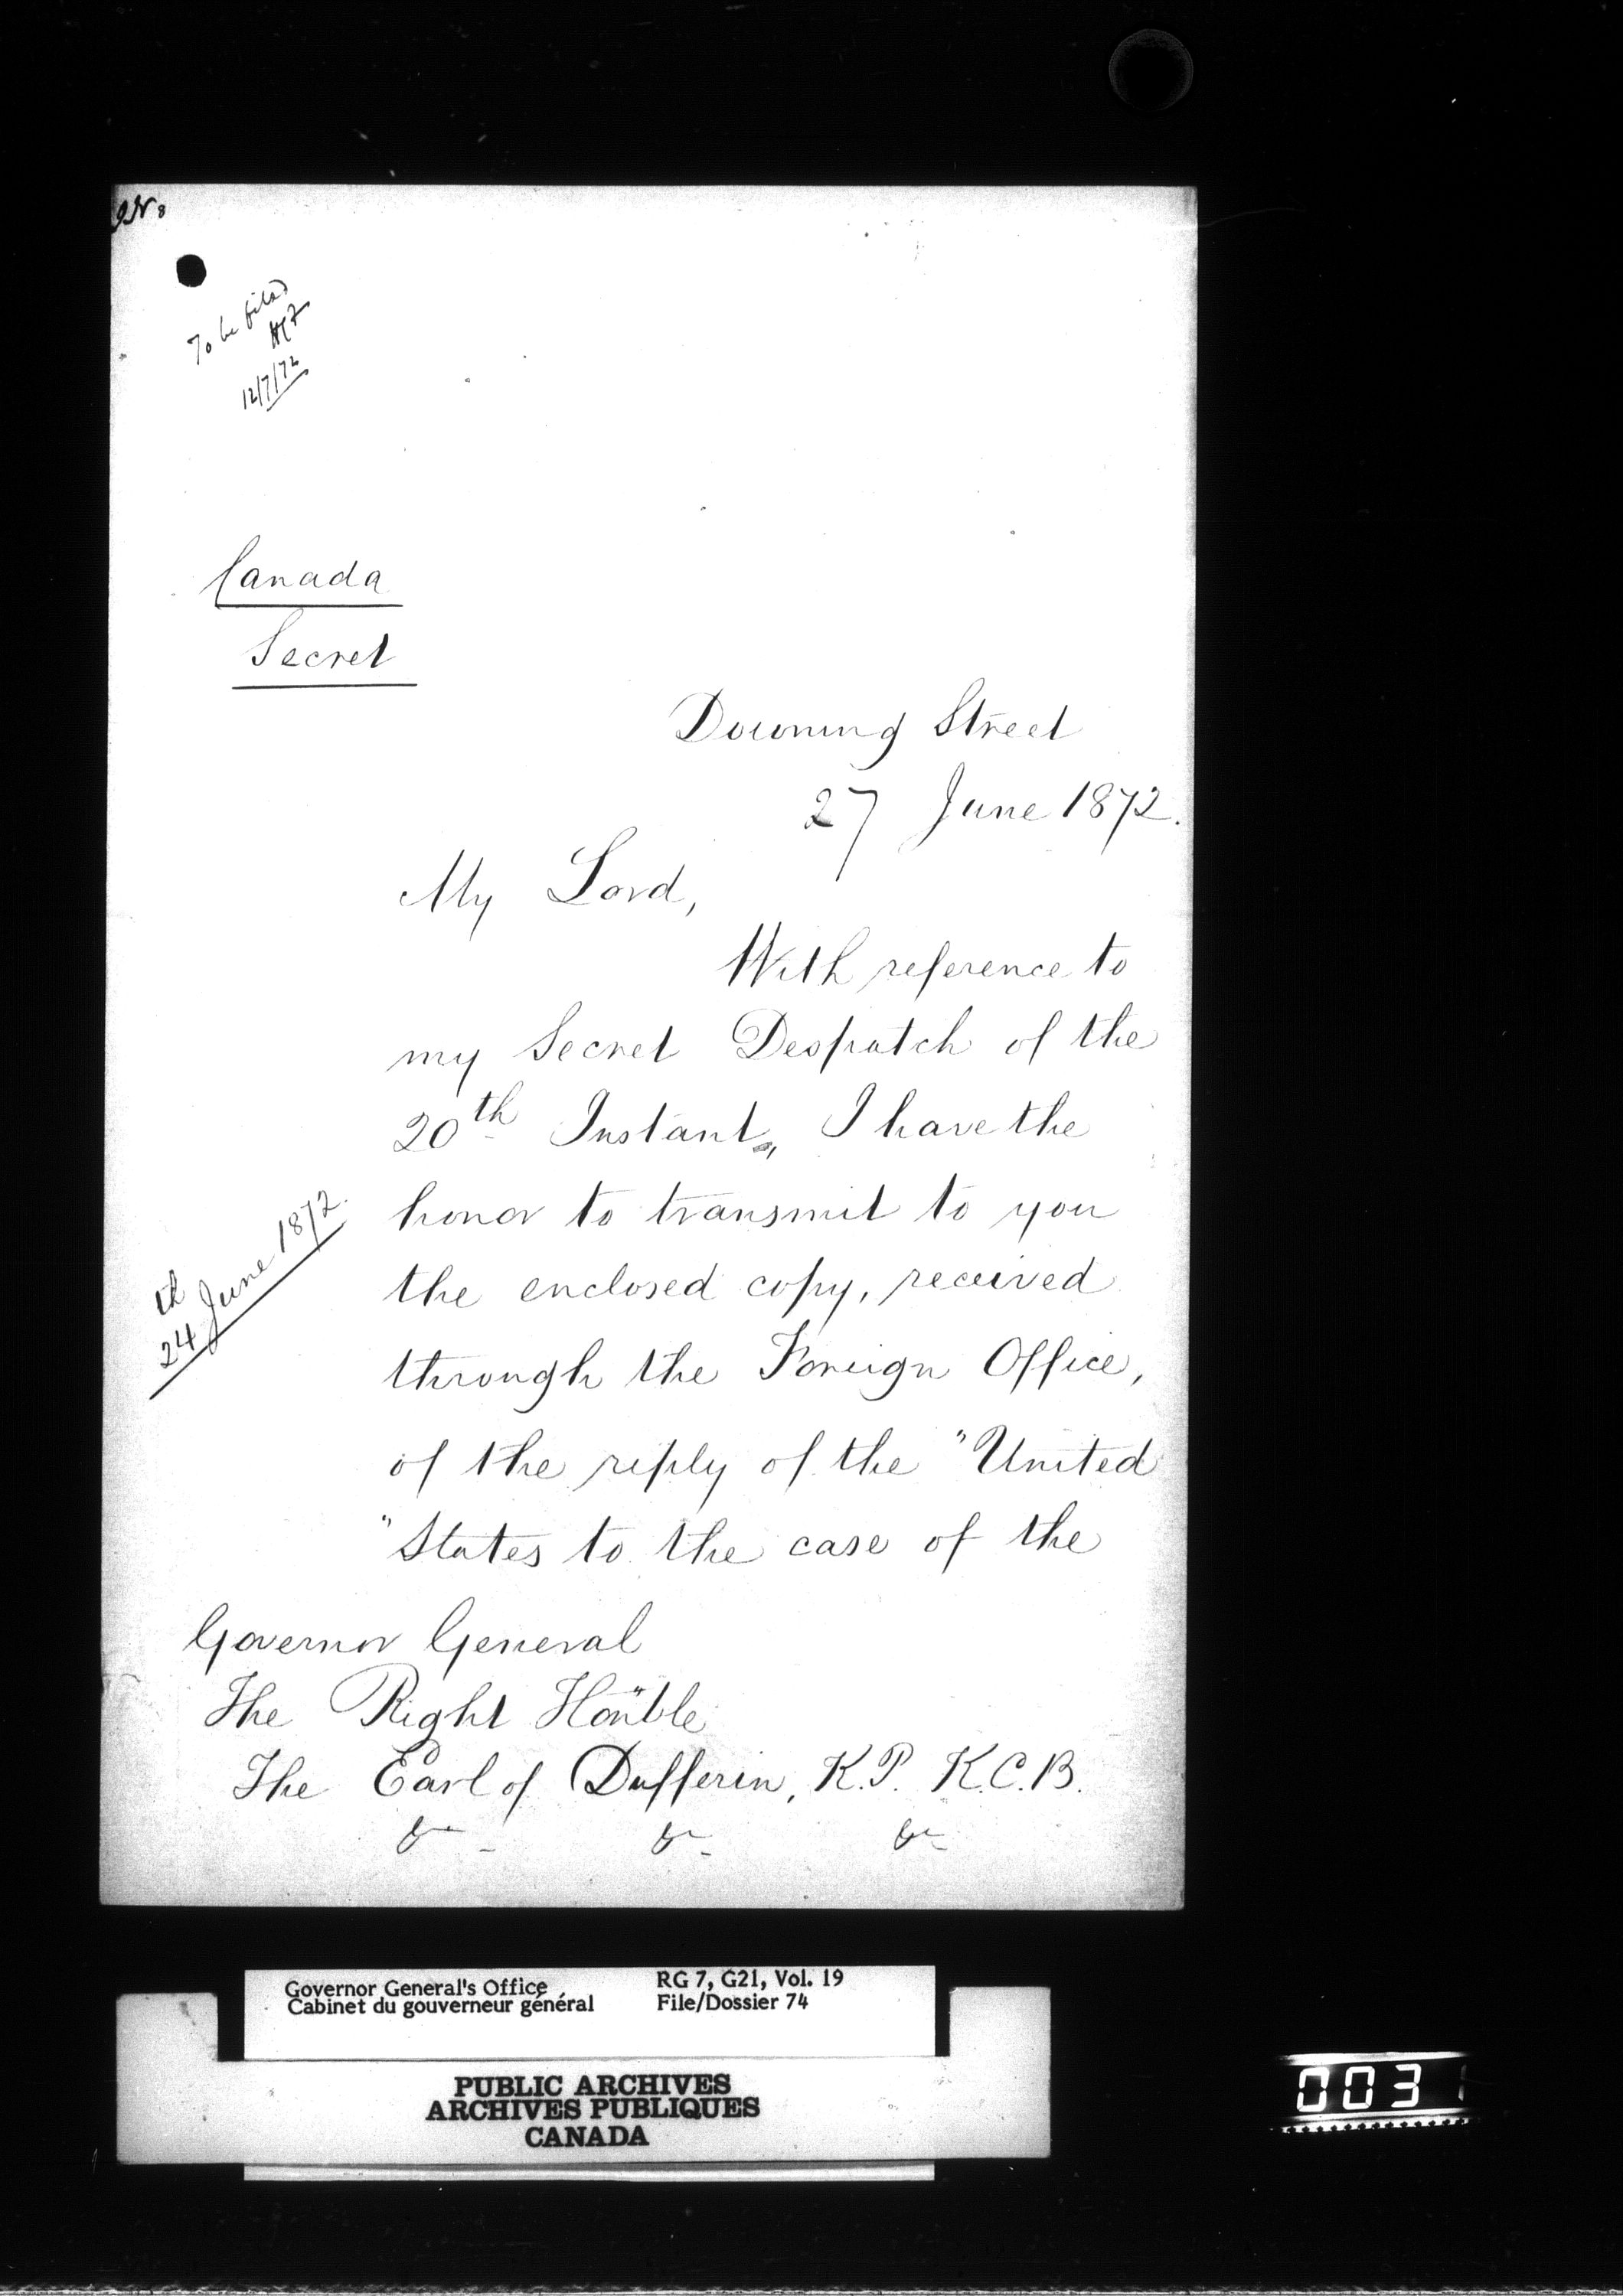 To be filed
12/7/72
Canada
Secret
Downing Street
27 June 1872.
My Lord,
With reference to
my Secret Despatch of the
20th Instant, I have the
honor to transmit to you
24th June 1872.
the enclosed copy, received
through the Foreign Office,
of the reply of the "United
"States to the case of the
Governor General
The Right Honble
The Earl of Dufferin, K.P. K.C.B.
&c &c &c
Governor General's Office
Cabinet du gouverneur général
RG 7, G21, Vol. 19
File/Dossier 74
PUBLIC ARCHIVES
ARCHIVES PUBLIQUES
CANADA
0031